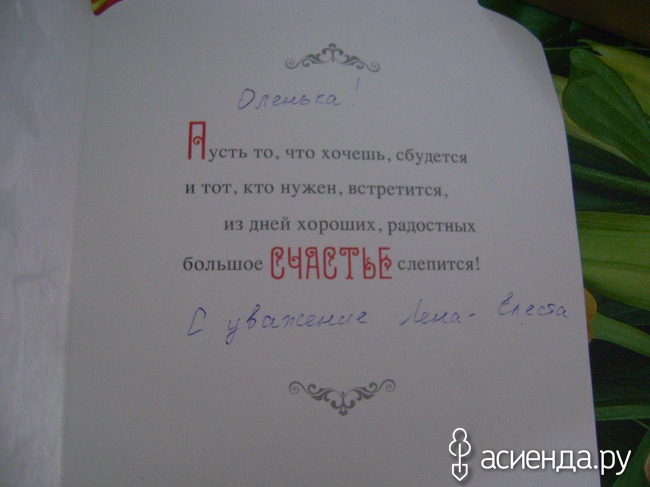 Оленька!
Пусть то, что хочешь, сбудется
и тот, кто нужен, встретится,
из дней хороших, радостных
большое СЧАСТЬЕ слепится!
С уважение Лена- Елеста
асиенда.ру